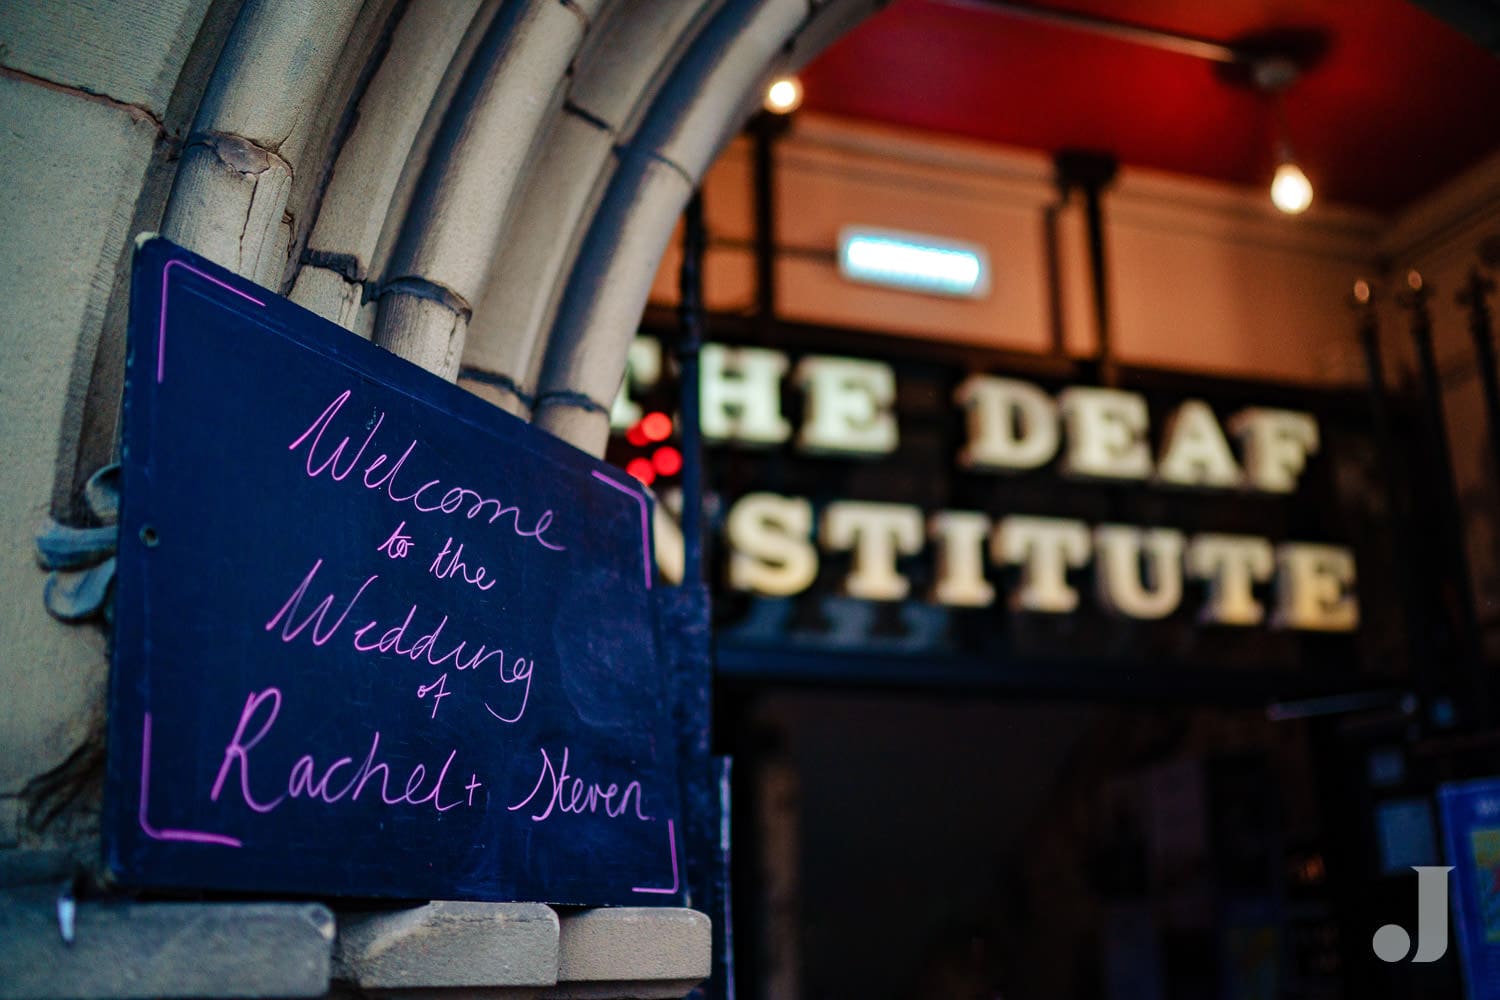 Welcome
to the
Wedding
of
Rachel + Steven
THE DEAF
INSTITUTE
J